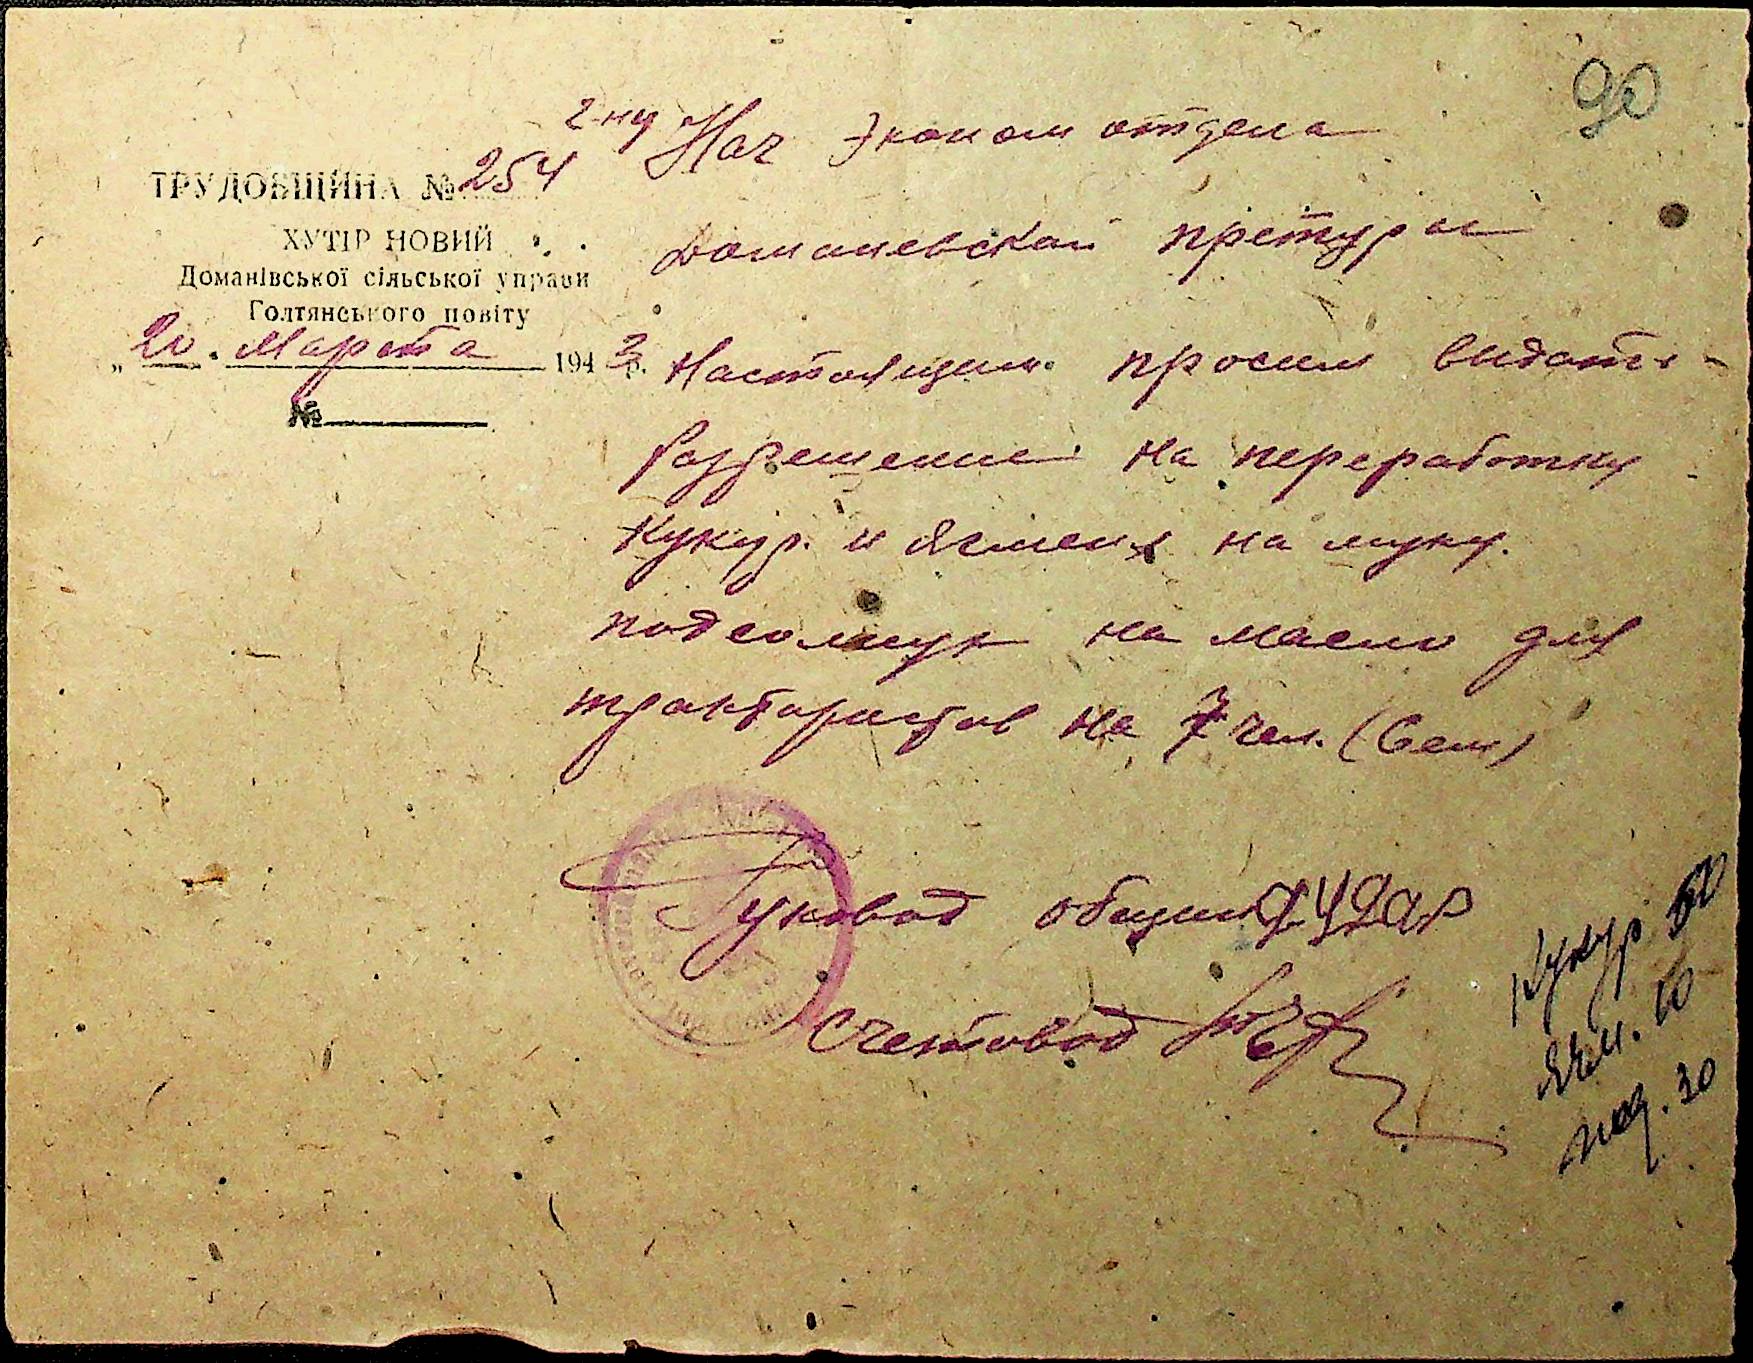 90
ТРУДОБЩИНА № 254
ХУТІР НОВИЙ
Доманівської сільської управи
Голтянського повіту
„20. Марта 1943р.
№
г-ну Нач Эконом отдела
Доманевской претуры
Настоящим просим видать
Разрешение на переработку
кукур. и ячменя на муку.
подсолнух на масло для
трактористов на 7 чел. (Сем)
Руковод общины
Счетовод
Кукур 50
Ячм. 60
под. 30